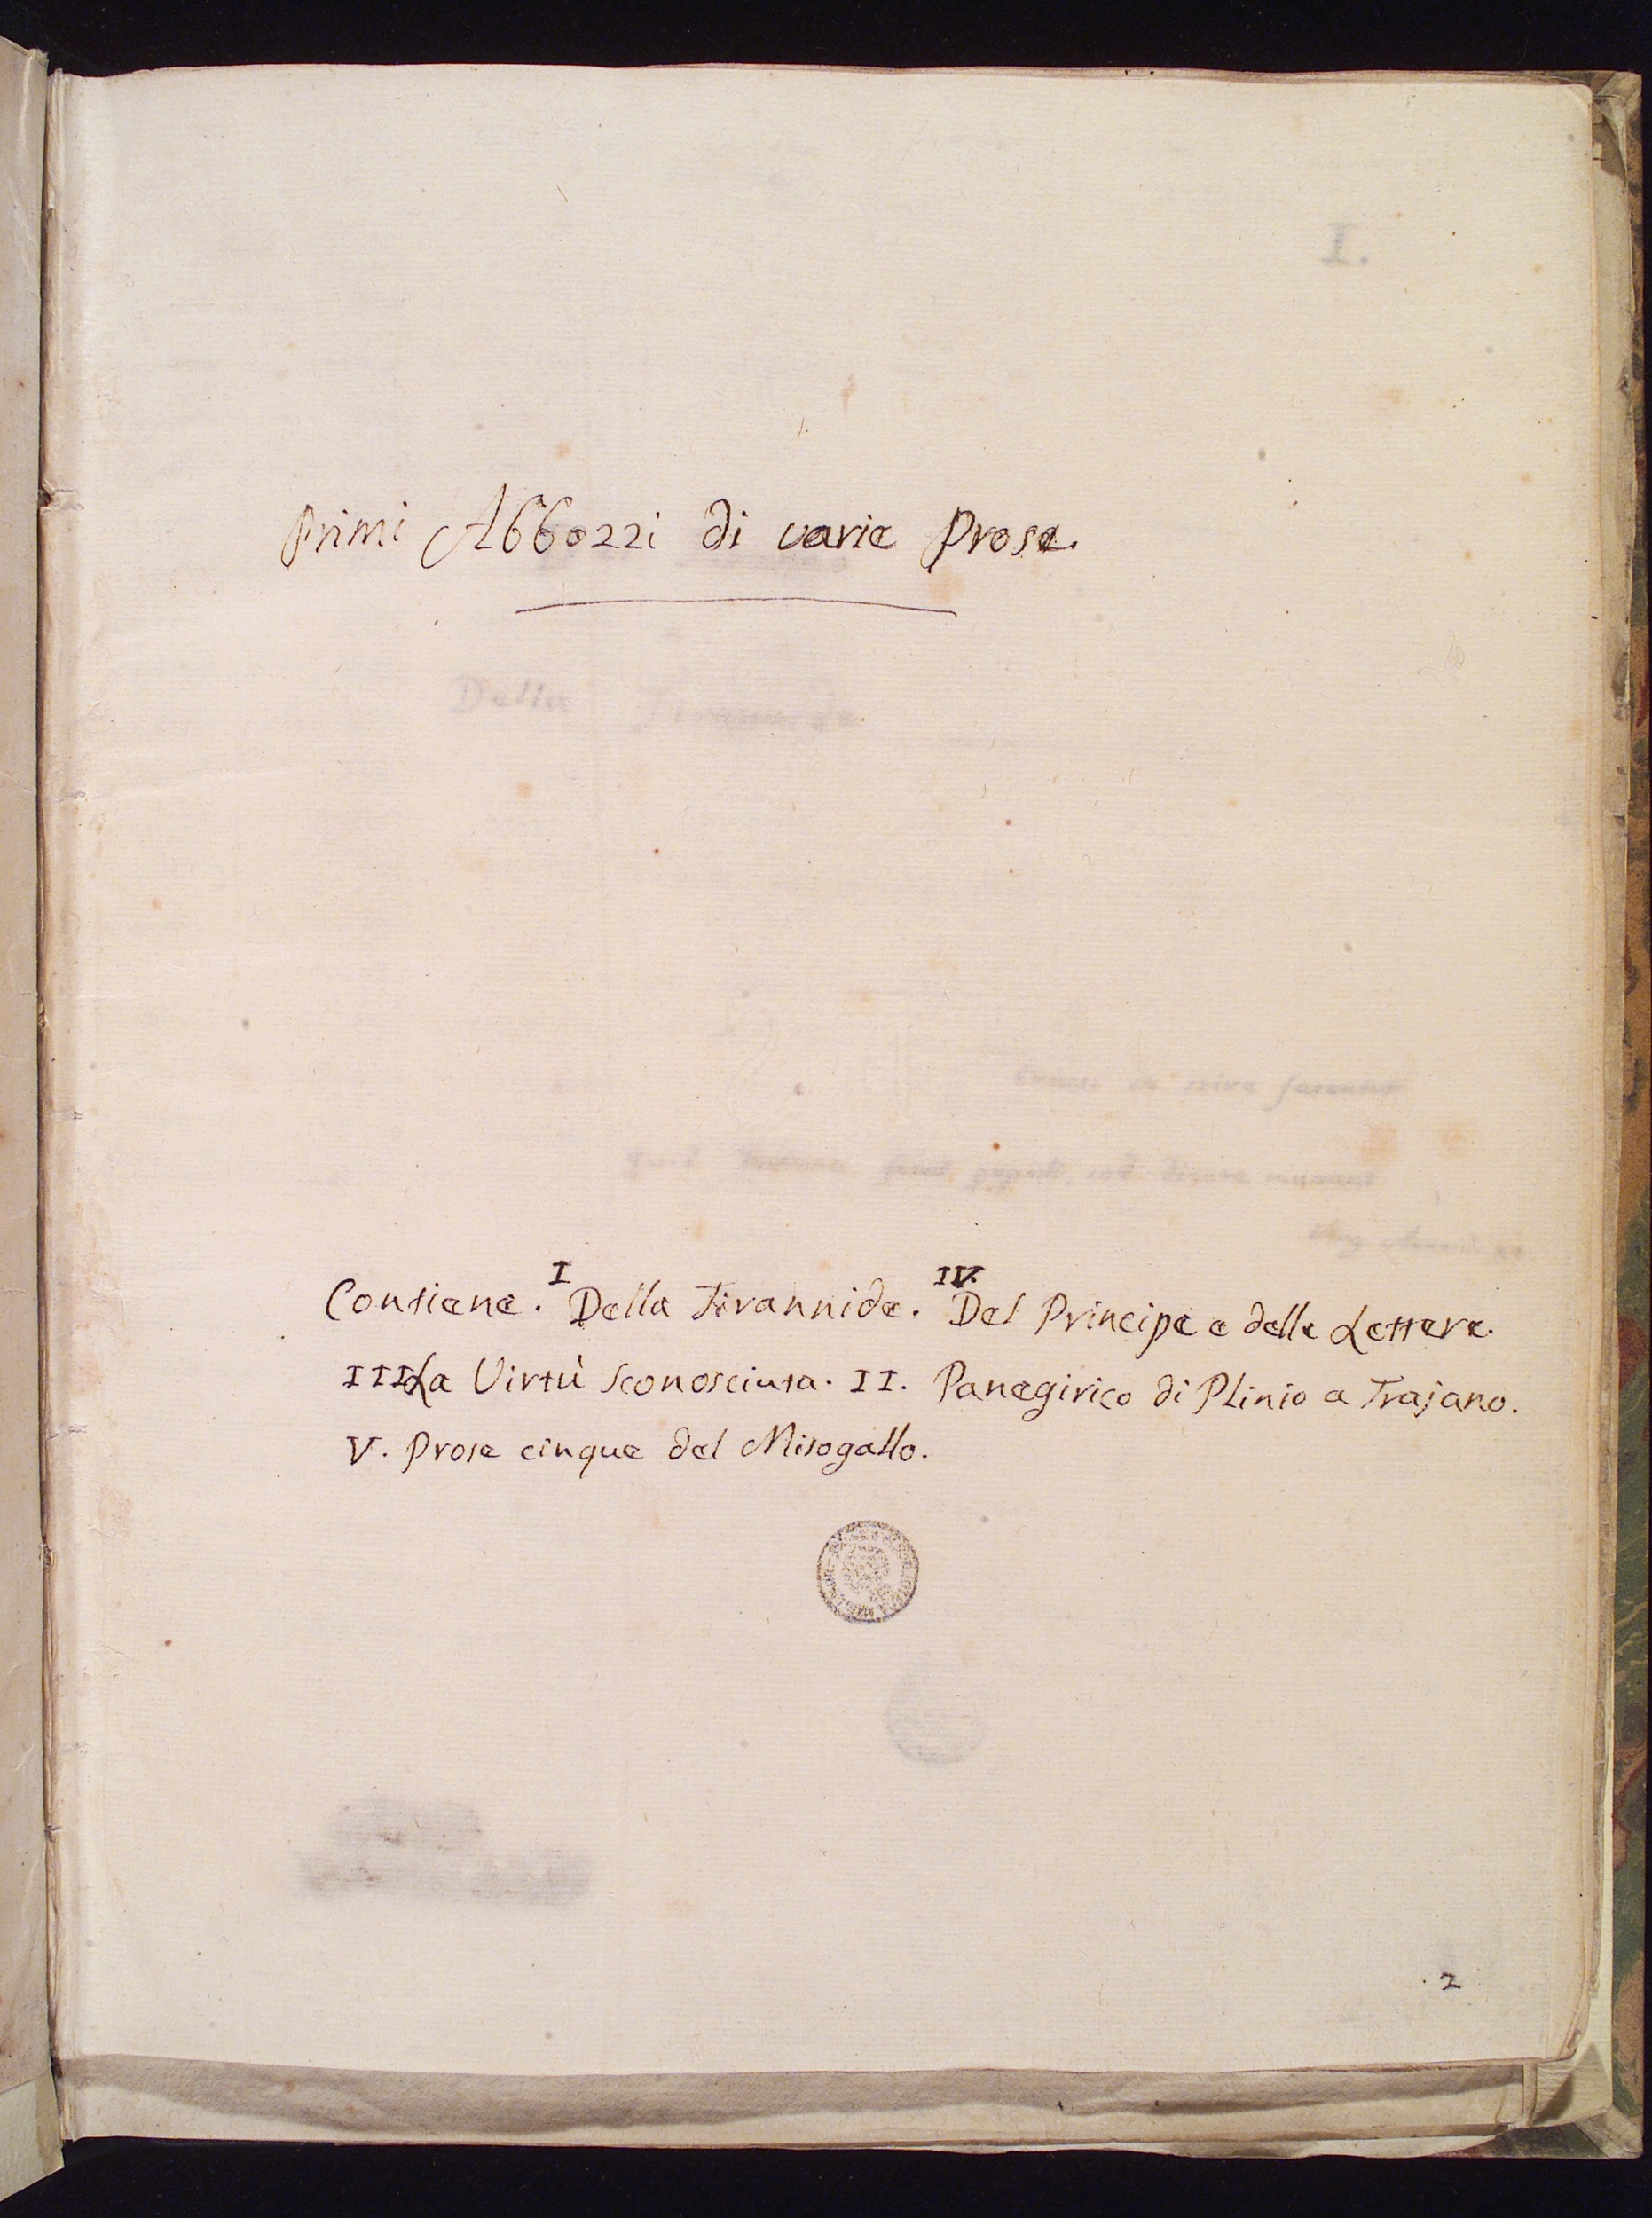 I.
Primi Abbozzi di varie Prose.
Della Tirannide
Contiene. I Della Tirannide. IV. Del Principe e delle Lettere.
III La Virtù sconosciuta. II. Panegirico di Plinio a Trajano.
V. Prose cinque del Misogallo.
2